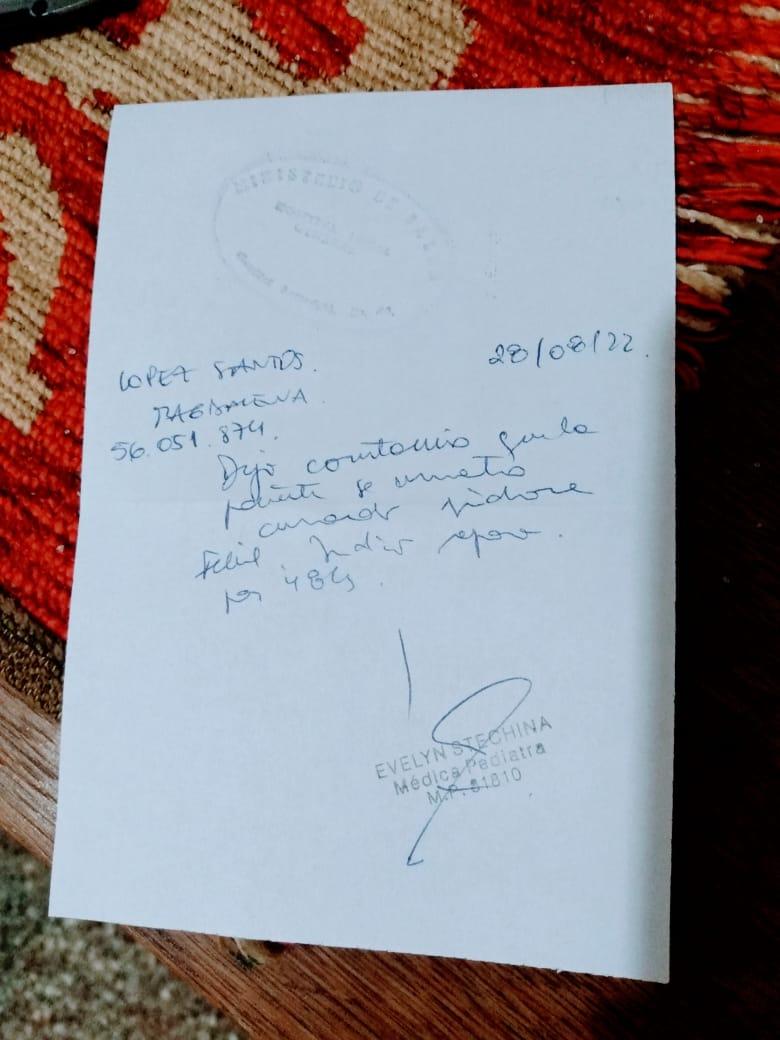 MINISTERIO DE SAL
HOSPITAL
28/08/22.
LOPEZ SANTOS.
MAGDALENA.
56.051.874.
Dejo constancia que la
paciente se encuentra
cursando síndrome
febril Indico reposo.
por 48hs.
EVELYN STECHINA
Médica Pediatra
M.P. 81810